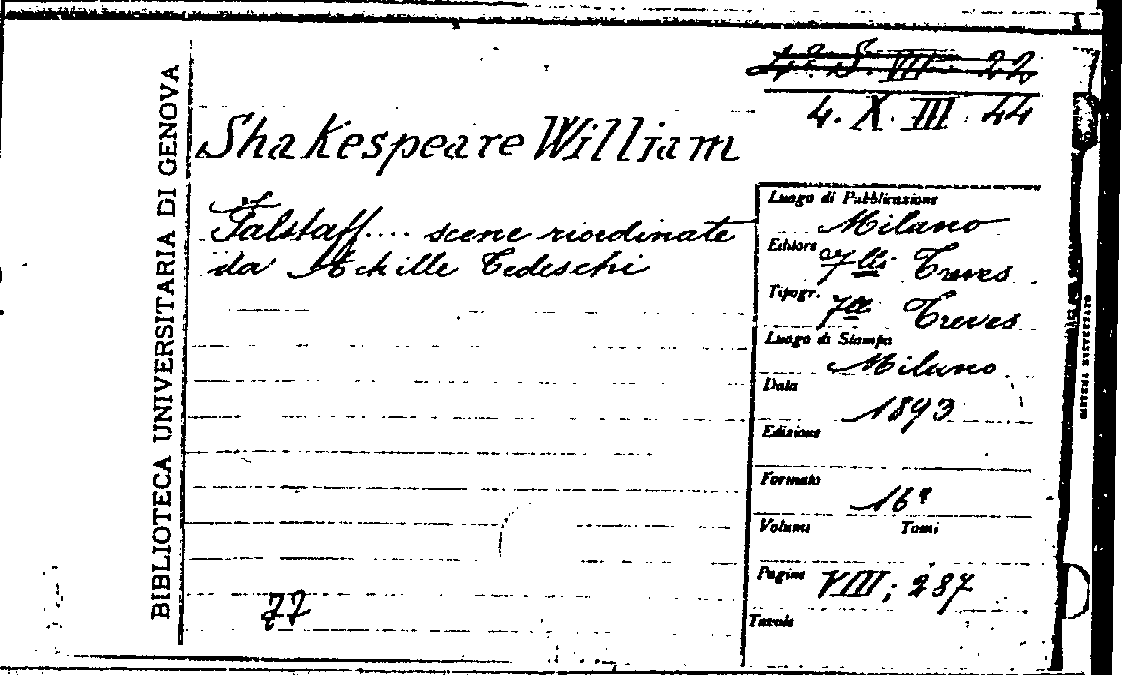 4. X. III. 44
Shakespeare William
Falstaff.... scene riordinate
da Achille Tedeschi
77
BIBLIOTECA UNIVERSITARIA DI GENOVA
Luogo di Pubblicazione
Milano
Editore F.lli Treves
Tipogr. F.lli Treves
Luogo di Stampa
Milano
Data
1893
Edizione
Formato
16°
Volumi Tomi
Pagine VIII; 287
Tavole